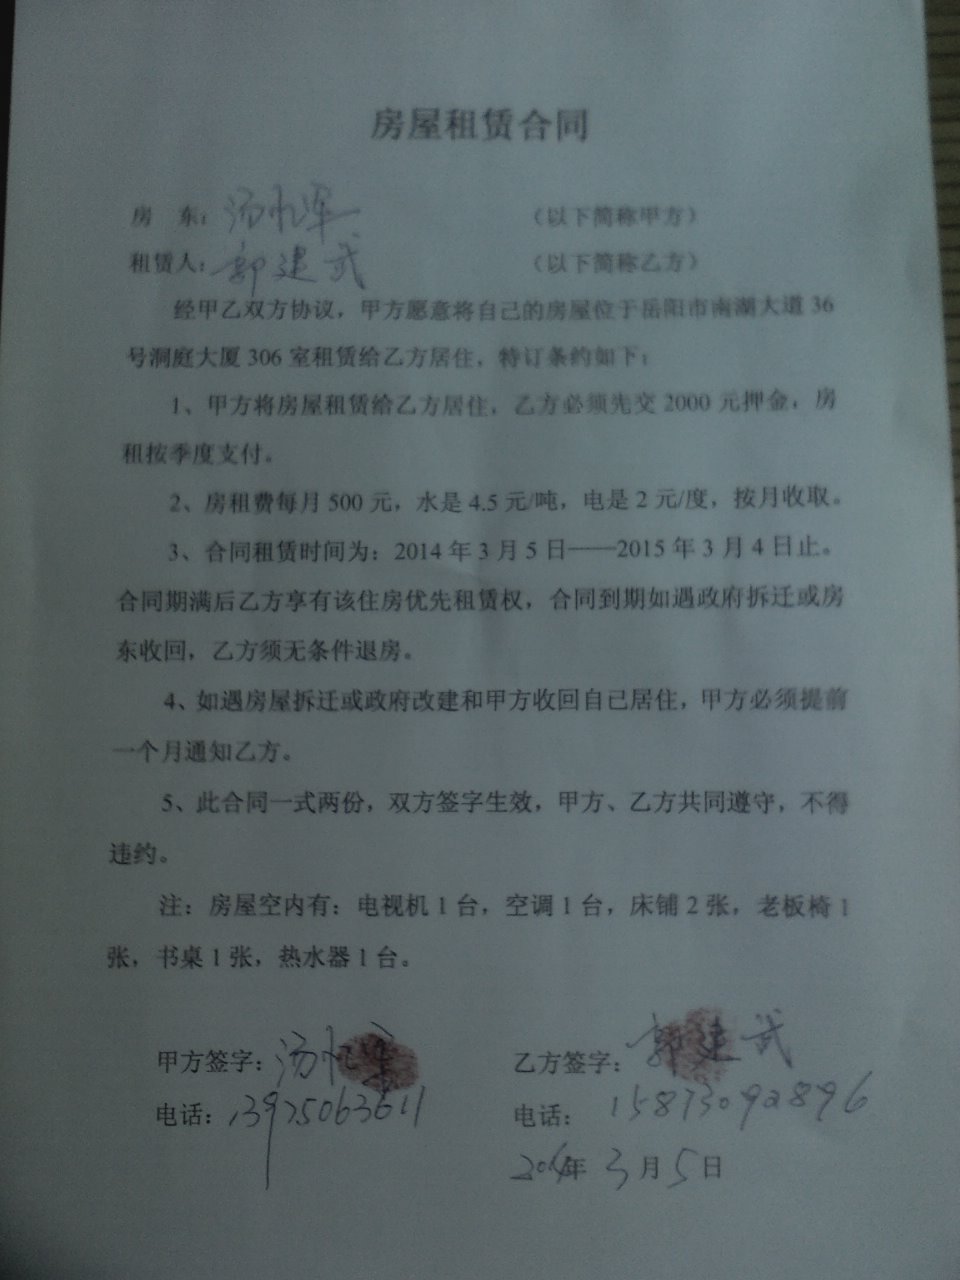 房屋租赁合同
房 东：汤忆军 （以下简称甲方）
租赁人：郭建武 （以下简称乙方）
经甲乙双方协议，甲方愿意将自己的房屋位于岳阳市南湖大道 36
号洞庭大厦 306 室租赁给乙方居住，特订条约如下：
1、甲方将房屋租赁给乙方居住，乙方必须先交 2000 元押金，房
租按季度支付。
2、房租费每月 500 元，水是 4.5 元/吨，电是 2 元/度，按月收取。
3、合同租赁时间为：2014 年 3 月 5 日——2015 年 3 月 4 日止。
合同期满后乙方享有该住房优先租赁权，合同到期如遇政府拆迁或房
东收回，乙方须无条件退房。
4、如遇房屋拆迁或政府改建和甲方收回自己居住，甲方必须提前
一个月通知乙方。
5、此合同一式两份，双方签字生效，甲方、乙方共同遵守，不得
违约。
注：房屋空内有：电视机 1 台，空调 1 台，床铺 2 张，老板椅 1
张，书桌 1 张，热水器 1 台。
甲方签字：汤忆军 乙方签字：郭建武
电话：13975063611 电话：15873092896
2014年 3 月 5 日